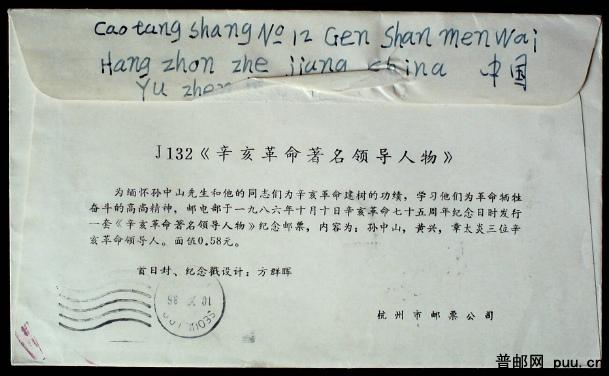 Cao tang shang No 12 Gen Shan men Wai
Hang zhon zhe jiang china 中国
Yu zhen
J132《辛亥革命著名领导人物》
为缅怀孙中山先生和他的同志们为辛亥革命建树的功绩，学习他们为革命牺牲
奋斗的高高精神，邮电部于一九八六年十月十日辛亥革命七十五周年纪念日时发行
一套《辛亥革命著名领导人物》纪念邮票，内容为：孙中山，黄兴，章太炎三位辛
亥革命领导人。面值0.58元。
首日封、纪念戳设计：方群晖
杭州市邮票公司
普邮网 puu.cn